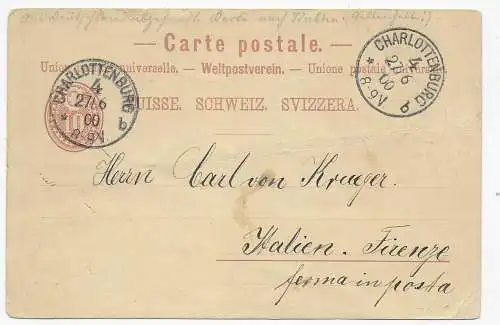 Carte postale.
Union postale universelle. — Weltpostverein. — Unione postale universale.
SUISSE. SCHWEIZ. SVIZZERA.
CHARLOTTENBURG
4
27/6
00
* 8-9V b
CHARLOTTENBURG
4
27/6
00
* 8-9V b
10
Herrn Carl von Krueger.
Italien. Firenze
ferma in posta